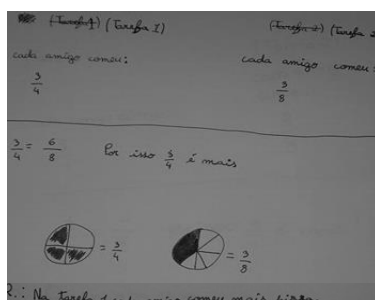 (Tarefa 1) (Tarefa 1)
(Tarefa 2) (Tarefa 2
cada amigo comeu:
cada amigo comeu:
3/4
3/8
3/4 = 6/8 Por isso 3/4 é mais
= 3/4
= 3/8
R.: Na tarefa 1 cada amigo comeu mais pizza